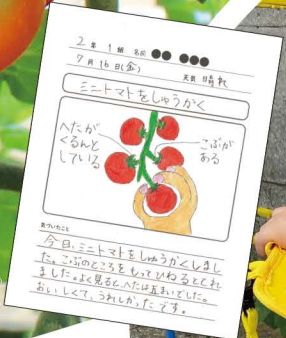 2年 1組 名前 ●● ●●●
7月16日(金) 天気 晴れ
ミニトマトをしゅうかく
へたが
くるんと
している
こぶが
ある
気づいたこと
今日、ミニトマトをしゅうかくしまし
た。こぶのところをもってひねるととれ
ました。よく見ると、へたは五まいでした。
おいしくて、うれしかったです。